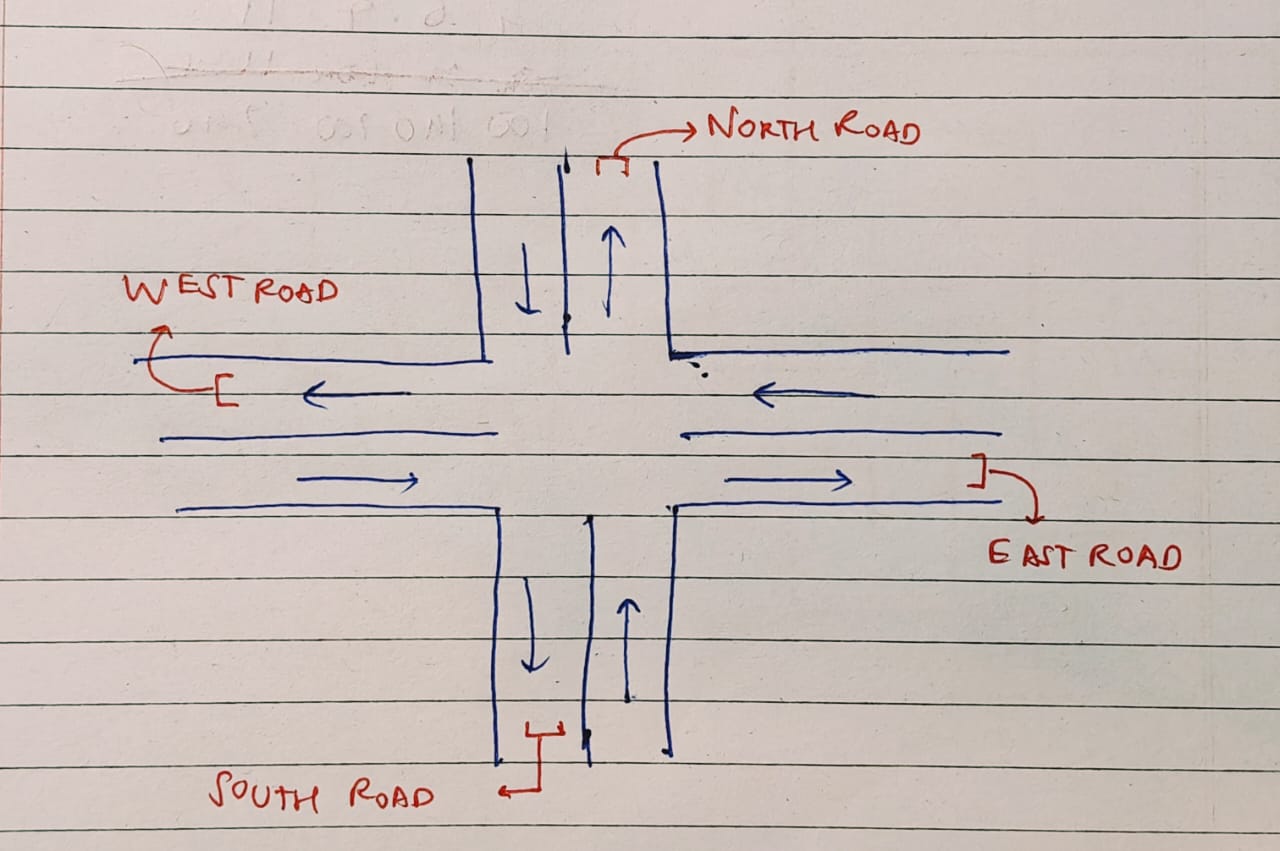 NORTH ROAD
WEST ROAD
EAST ROAD
SOUTH ROAD